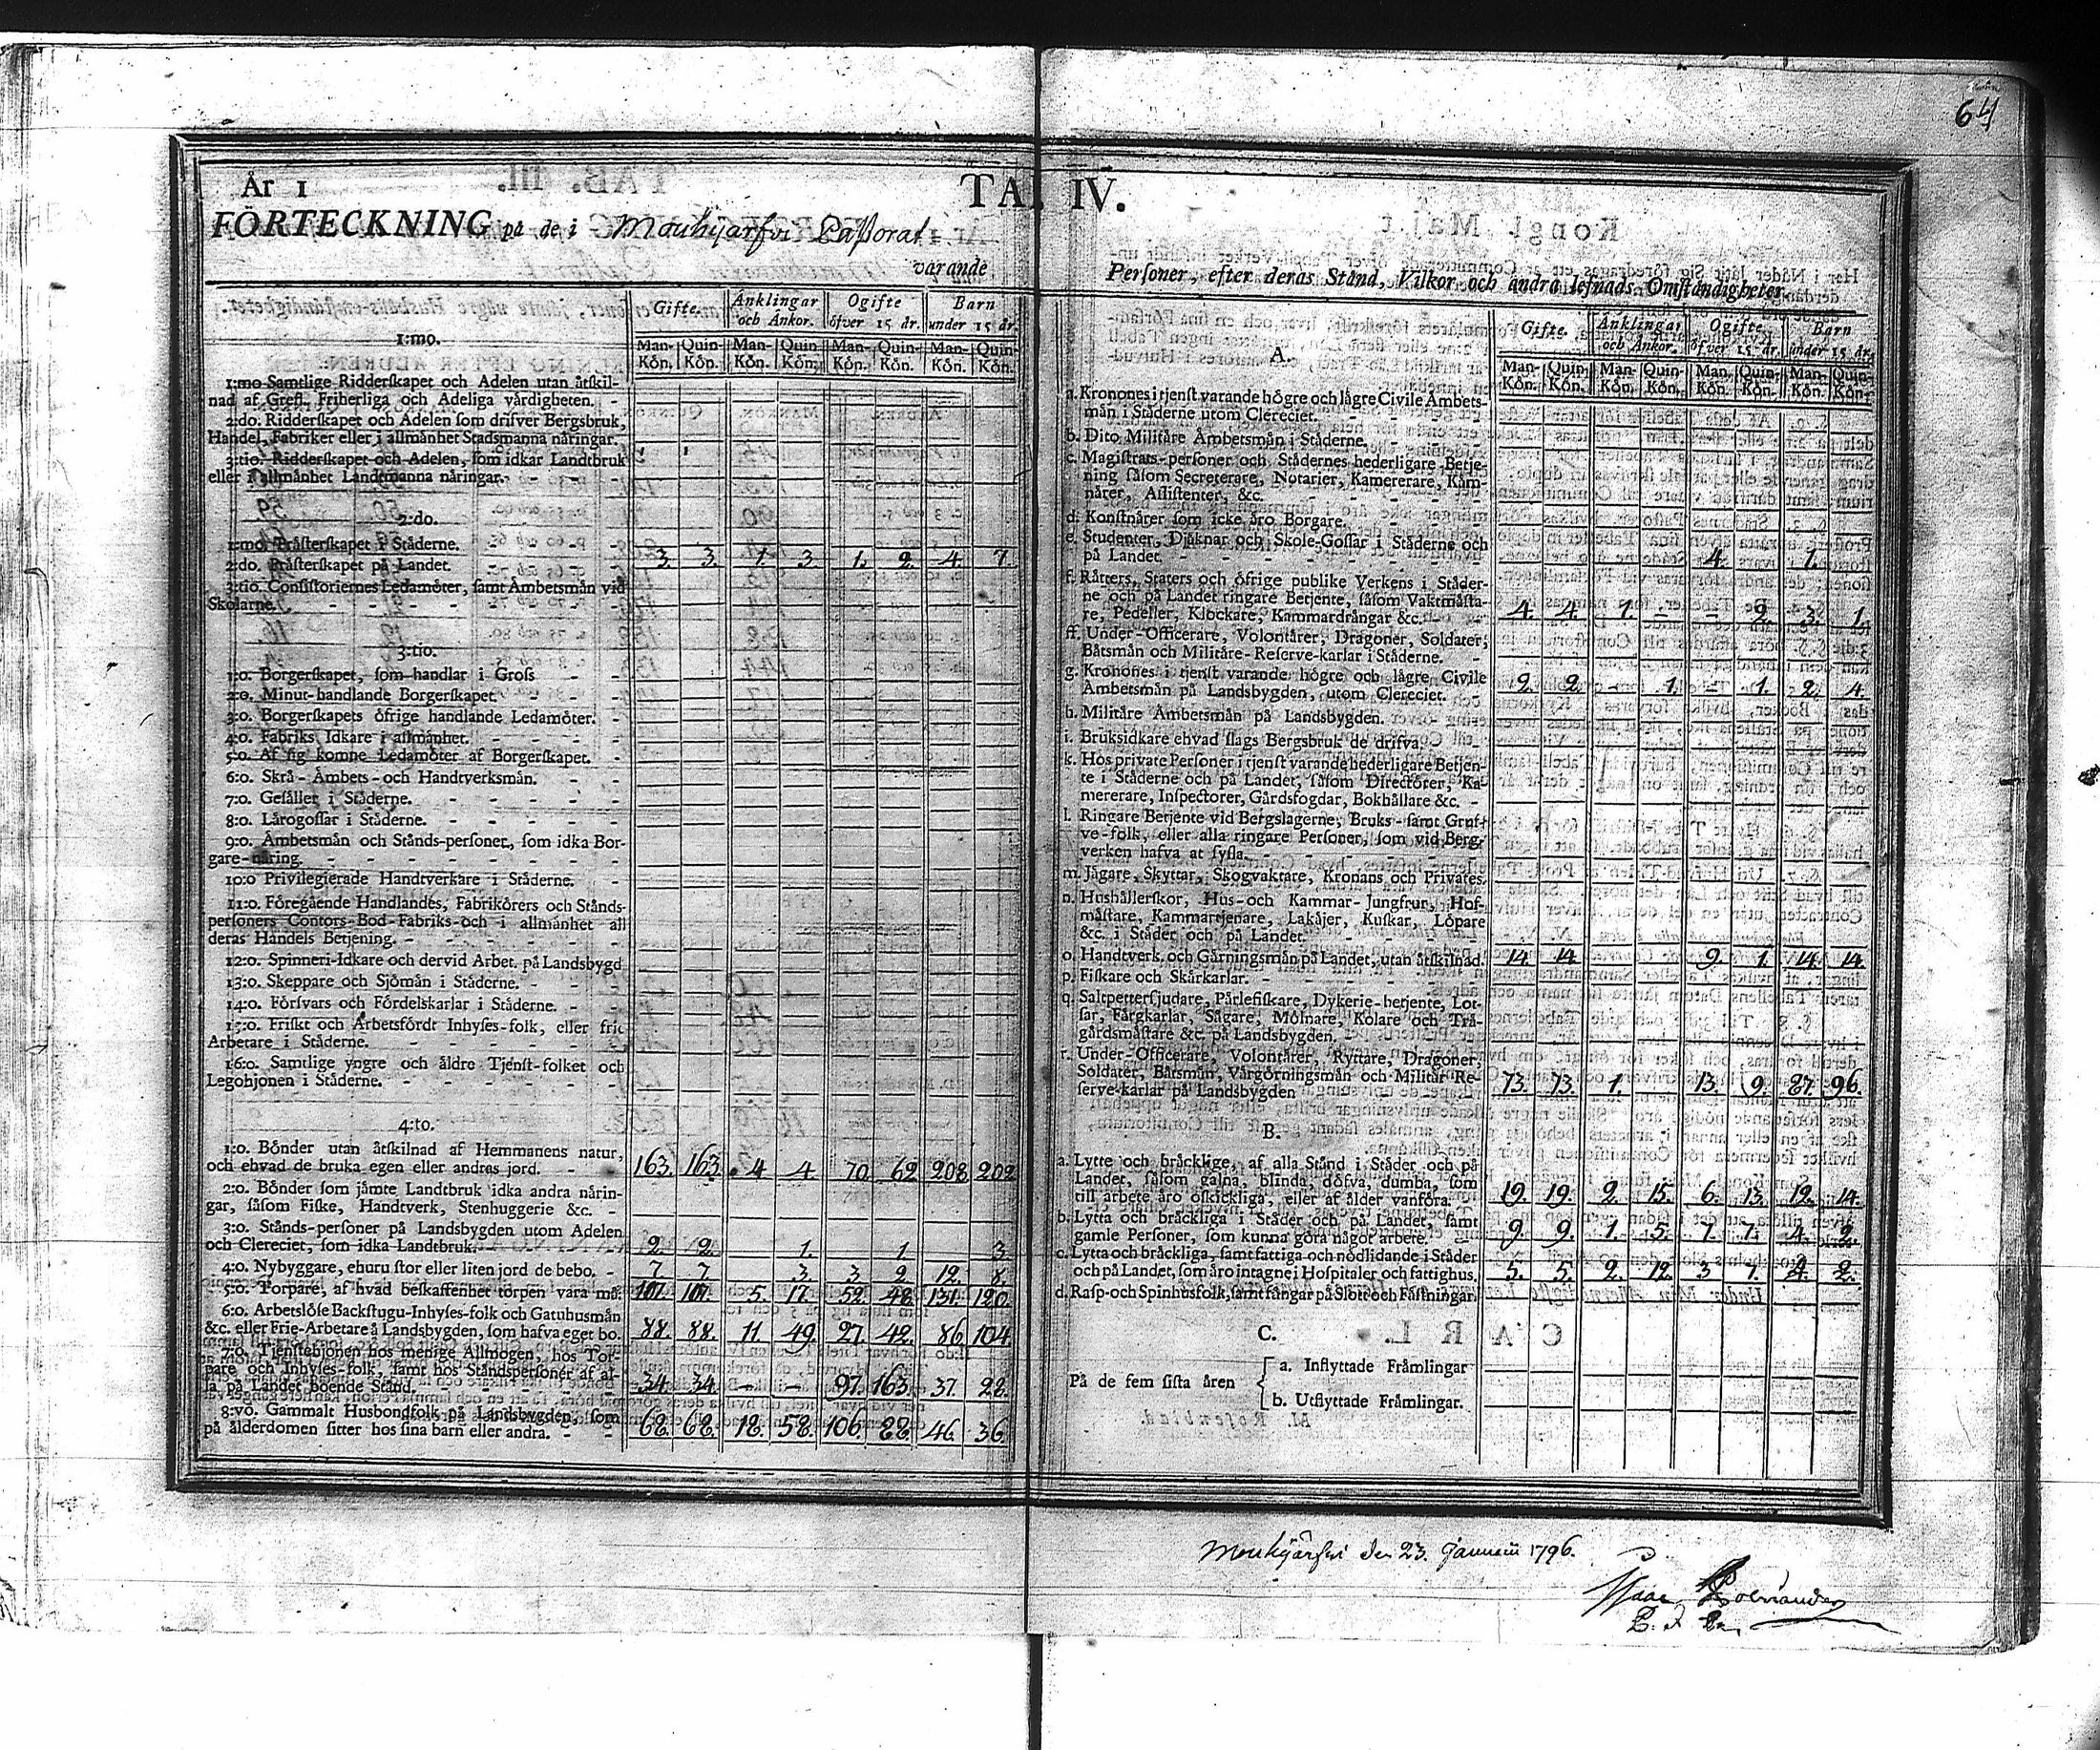 64
År 1
TA. IV.
FÖRTECKNING på de i Mouhijärfvi Pastorat
varande
Gifte. Änklingar och Änkor. Ogifte öfver 15 år. Barn under 15 år.
Man-Kön. Quin-Kön. Man-Kön. Quin-Kön. Man-Kön. Quin-Kön. Man-Kön. Quin-Kön.
1:mo.
1:mo Samtlige Ridderskapet och Adelen utan åtskil-
nad af Grefl. Friherliga och Adeliga värdigheten. -
2:do. Ridderskapet och Adelen som drifver Bergsbruk,
Handel, Fabriker eller i allmänhet Stadsmanna näringar.
3:tio. Ridderskapet och Adelen, som idkar Landtbruk
eller i allmänhet Landtmanna näringar.
2:do.
1:mo. Prästerskapet i Städerne.
2:do. Prästerskapet på Landet. 3. 3. 1. 3. 1. 2. 4. 7.
3:tio. Consistoriernes Ledamöter, samt Ämbetsmän vid
Skolarne.
3:tio.
1:o. Borgerskapet, som handlar i Gross
2:o. Minut-handlande Borgerskapet.
3:o. Borgerskapets öfrige handlande Ledamöter. -
4:o. Fabriks Idkare i allmänhet.
5:o. Af sig komne Ledamöter af Borgerskapet. -
6:o. Skrå-Ämbets-och Handtverksmän.
7:o. Gesäller i Städerne.
8:o. Lärogossar i Städerne.
9:o. Ämbetsmän och Stånds-personer, som idka Bor-
gare-näring.
10:o Privilegierade Handtverkare i Städerne.
11:o. Föregående Handlandes, Fabrikörers och Stånds-
personers Contors-Bod-Fabriks-och i allmänhet all
deras Handels Betjening.
12:o. Spinneri-Idkare och dervid Arbet. på Landsbygd
13:o. Skeppare och Sjömän i Städerne.
14:o. Försvars och Fördelskarlar i Städerne.
15:o. Friskt och Arbetsfördt Inhyses-folk, eller frie
Arbetare i Städerne.
16:o. Samtlige yngre och äldre Tjenst-folket och
Legohjonen i Städerne.
4:to.
1:o. Bönder utan åtskilnad af Hemmanens natur,
och ehvad de bruka egen eller andras jord. 163. 163. 4 4. 70. 62 208. 202
2:o. Bönder som jämte Landtbruk idka andra närin-
gar, såsom Fiske, Handtverk, Stenhuggerie &c. -
3:o. Stånds-personer på Landsbygden utom Adelen
och Clereciet, som idka Landtbruk. 2. 2. 1. 1 3.
4:o. Nybyggare, ehuru stor eller liten jord de bebo. - 7 7 3. 3 2 12. 8.
5:o. Torpare, af hvad beskaffenhet torpen vara må. 107. 107. 5. 17. 52. 48. 131. 120.
6:o. Arbetslöse Backstugu-Inhyses-folk och Gatuhusmän
&c. eller Frie-Arbetare å Landsbygden, som hafva eget bo. 88. 88. 11. 49. 27. 42. 86. 104
7:o. Tjenstehjonen hos menige Allmogen, hos Tor-
pare och Inhyses-folk, samt hos Ståndspersoner af al-
la på Landet boende Stånd. 34. 34. - - 97. 163. 37. 22.
8:vo. Gammalt Husbondfolk på Landsbygden, som
på ålderdomen sitter hos sina barn eller andra. 68. 68. 18. 58. 106. 88. 46. 36.
Personer, efter deras Stånd, Vilkor och andra lefnads Omständigheter.
Gifte. Änklingar och Änkor. Ogifte öfver 15 år. Barn under 15 år.
Man-Kön. Quin-Kön. Man-Kön. Quin-Kön. Man-Kön. Quin-Kön. Man-Kön. Quin-Kön.
A.
a. Kronones i tjenst varande högre och lägre Civile Ämbets-
män i Städerne utom Clereciet.
b. Dito Militäre Ämbetsmän i Städerne.
c. Magistrats-personer och Städernes hederligare Betje-
ning såsom Secreterare, Notarier, Kamererare, Käm-
närer, Assistenter, &c.
d. Konstnärer som icke äro Borgare.
e. Studenter, Djäknar och Skole-Gossar i Städerne och
på Landet. 4. 1.
f. Rätters, Staters och öfrige publike Verkens i Städer-
ne och på Landet ringare Betjente, såsom Vaktmästa-
re, Pedeller, Klockare, Kammardrängar &c. 4. 4. 1. - - 2. 3. 1.
ff. Under-Officerare, Volontärer, Dragoner, Soldater,
Båtsmän och Militäre-Reserve-karlar i Städerne.
g. Kronones i tjenst varande högre och lägre Civile
Ämbetsmän på Landsbygden, utom Clereciet. 2. 2. - 1. - 1. 2. 4.
h. Militäre Ämbetsmän på Landsbygden.
i. Bruksidkare ehvad slags Bergsbruk de drifva.
k. Hos private Personer i tjenst varande hederligare Betjen-
te i Städerne och på Landet, såsom Directörer, Ka-
mererare, Inspectorer, Gårdsfogdar, Bokhållare &c. -
l. Ringare Betjente vid Bergslagerne, Bruks-samt Gruf-
ve-folk, eller alla ringare Personer, som vid Berg-
verken hafva at sysla.
m. Jägare, Skyttar, Skogvaktare, Kronans och Privates.
n. Hushållerskor, Hus-och Kammar-Jungfrur, Hof-
mästare, Kammartjenare, Lakäjer, Kuskar, Löpare
&c. i Städer och på Landet.
o. Handtverk. och Gärningsmän på Landet, utan åtskilnad. 14. 14 9. 1. 14. 14
p. Fiskare och Skärkarlar.
q. Saltpettersjudare, Pärlefiskare, Dykerie-betjente, Lot-
sar, Färgkarlar, Sågare, Mölnare, Kolare och Trä-
gårdsmästare &c. på Landsbygden.
r. Under-Officerare, Volontärer, Ryttare, Dragoner,
Soldater, Båtsmän, Vargörningsmän och Militär Re-
serve-karlar på Landsbygden 73. 73. 1. 13. 9. 87. 96.
B.
a. Lytte och bräcklige, af alla Stånd i Städer och på
Landet, såsom galna, blinda, döfva, dumba, som
till arbete äro oskickliga, eller af ålder vanföra. 19. 19. 2. 15. 6. 13. 12. 14.
b. Lytta och bräckliga i Städer och på Landet, samt
gamle Personer, som kunna göra något arbete. 9. 9. 1. 5. 7. 7. 4. 2.
c. Lytta och bräckliga, samt fattiga och nödlidande i Städer
och på Landet, som äro intagne i Hospitaler och fattighus. 5. 5. 2. 12. 3 1. 2. 2.
d. Rasp-och Spinhusfolk, samt fångar på Slott och Fästningar.
C.
På de fem sista åren
a. Inflyttade Främlingar
b. Utflyttade Främlingar.
Mouhijärfvi den 23. Januarii 1796.
Isaac